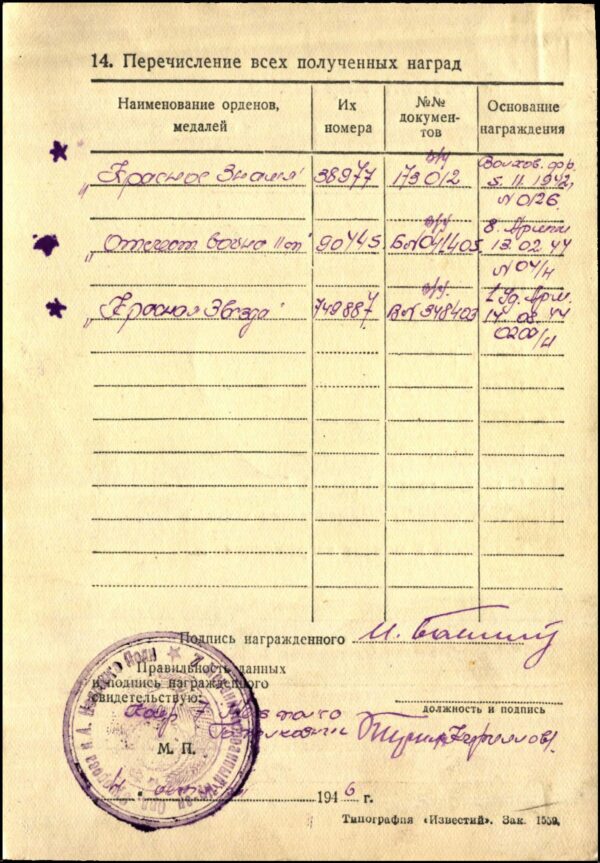 14. Перечисление всех полученных наград
Наименование орденов, медалей
Их номера
№№ докумен-тов
Основание награждения
"Красное Знамя" 38977 б/у 173012 Волхов. фр. 5.11.1942, № 0126
"Отечест война II ст" 90745 б/у Б№041405 8. Армии 13.02.44 № 04/н
"Красная Звезда" 749887 б/у. В№348403 2 Уд. Арм. 14.03.44 0200/н
Подпись награжденного
Правильность данных
и подпись награжденного
свидетельствую:
должность и подпись
М. П.
1946 г.
Типография «Известий». Зак. 1559.